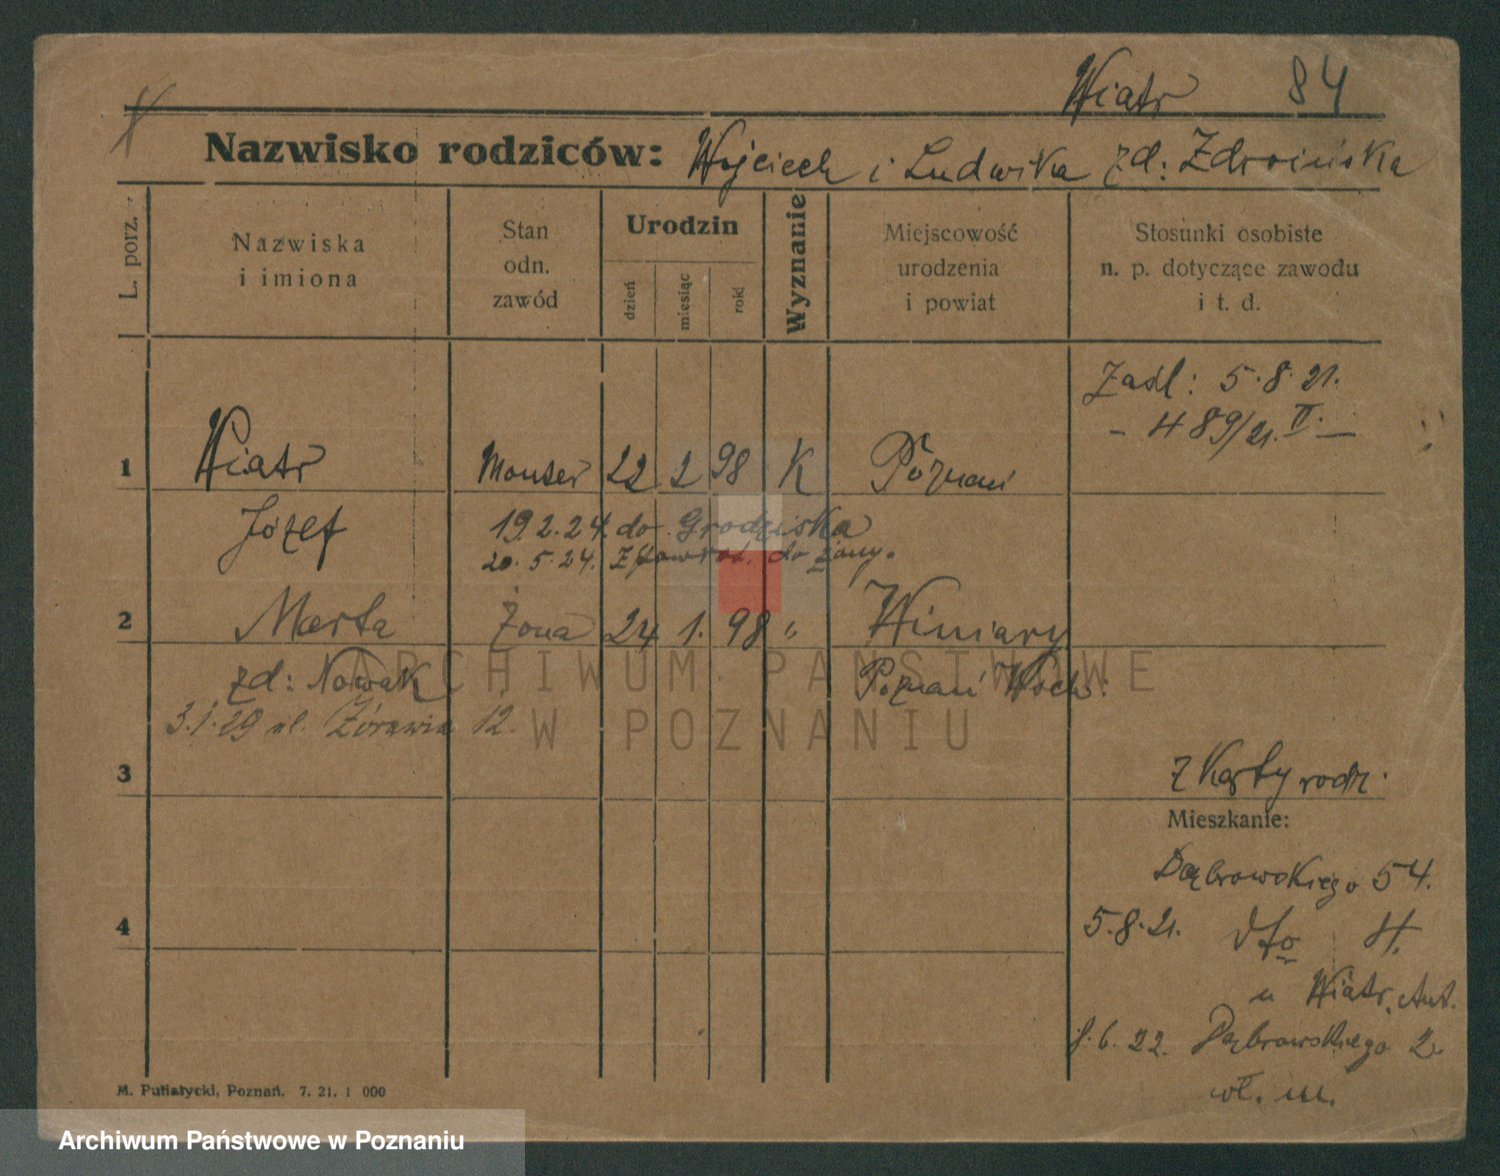 Wiatr 84
Nazwisko rodziców: Wojciech i Ludwika zd: Zdroińska
L. porz.
Nazwiska
i imiona
Stan
odn.
zawód
Urodzin
dzień
miesiąc
rok
Wyznanie
Miejscowość
urodzenia
i powiat
Stosunki osobiste
n. p. dotyczące zawodu
i t. d.
Zaśl: 5.8.21.
- 489/21. II. -
1 Wiatr Monter 22 2 98 K Poznań
Józef 19.2.24. do Grodziska
20.5.24. Z powrot. do żony.
2 Marta żona 24 1. 98 " Winiary
zd: Nowak Poznań Wsch:
3.1.29 ul. Żórawia 12.
3 z Karty rodz.
Mieszkanie:
Dąbrowskiego 54.
4 5.8.21. dto 4.
u Wiatr, Ant.
6.22. Dąbrowskiego 2
wł. m.
M. Putiatycki, Poznań. 7. 21. 1 000
ARCHIWUM PAŃSTWOWE
W POZNANIU
Archiwum Państwowe w Poznaniu